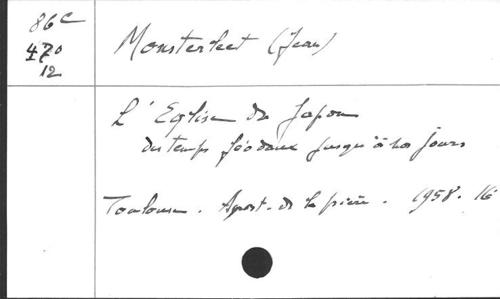 86 C
470
12
Monsterleet (Jean)
L'Eglise du Japon
des temps féodaux jusqu'à nos jours
Toulouse. Apost. de la prière. 1958. 16